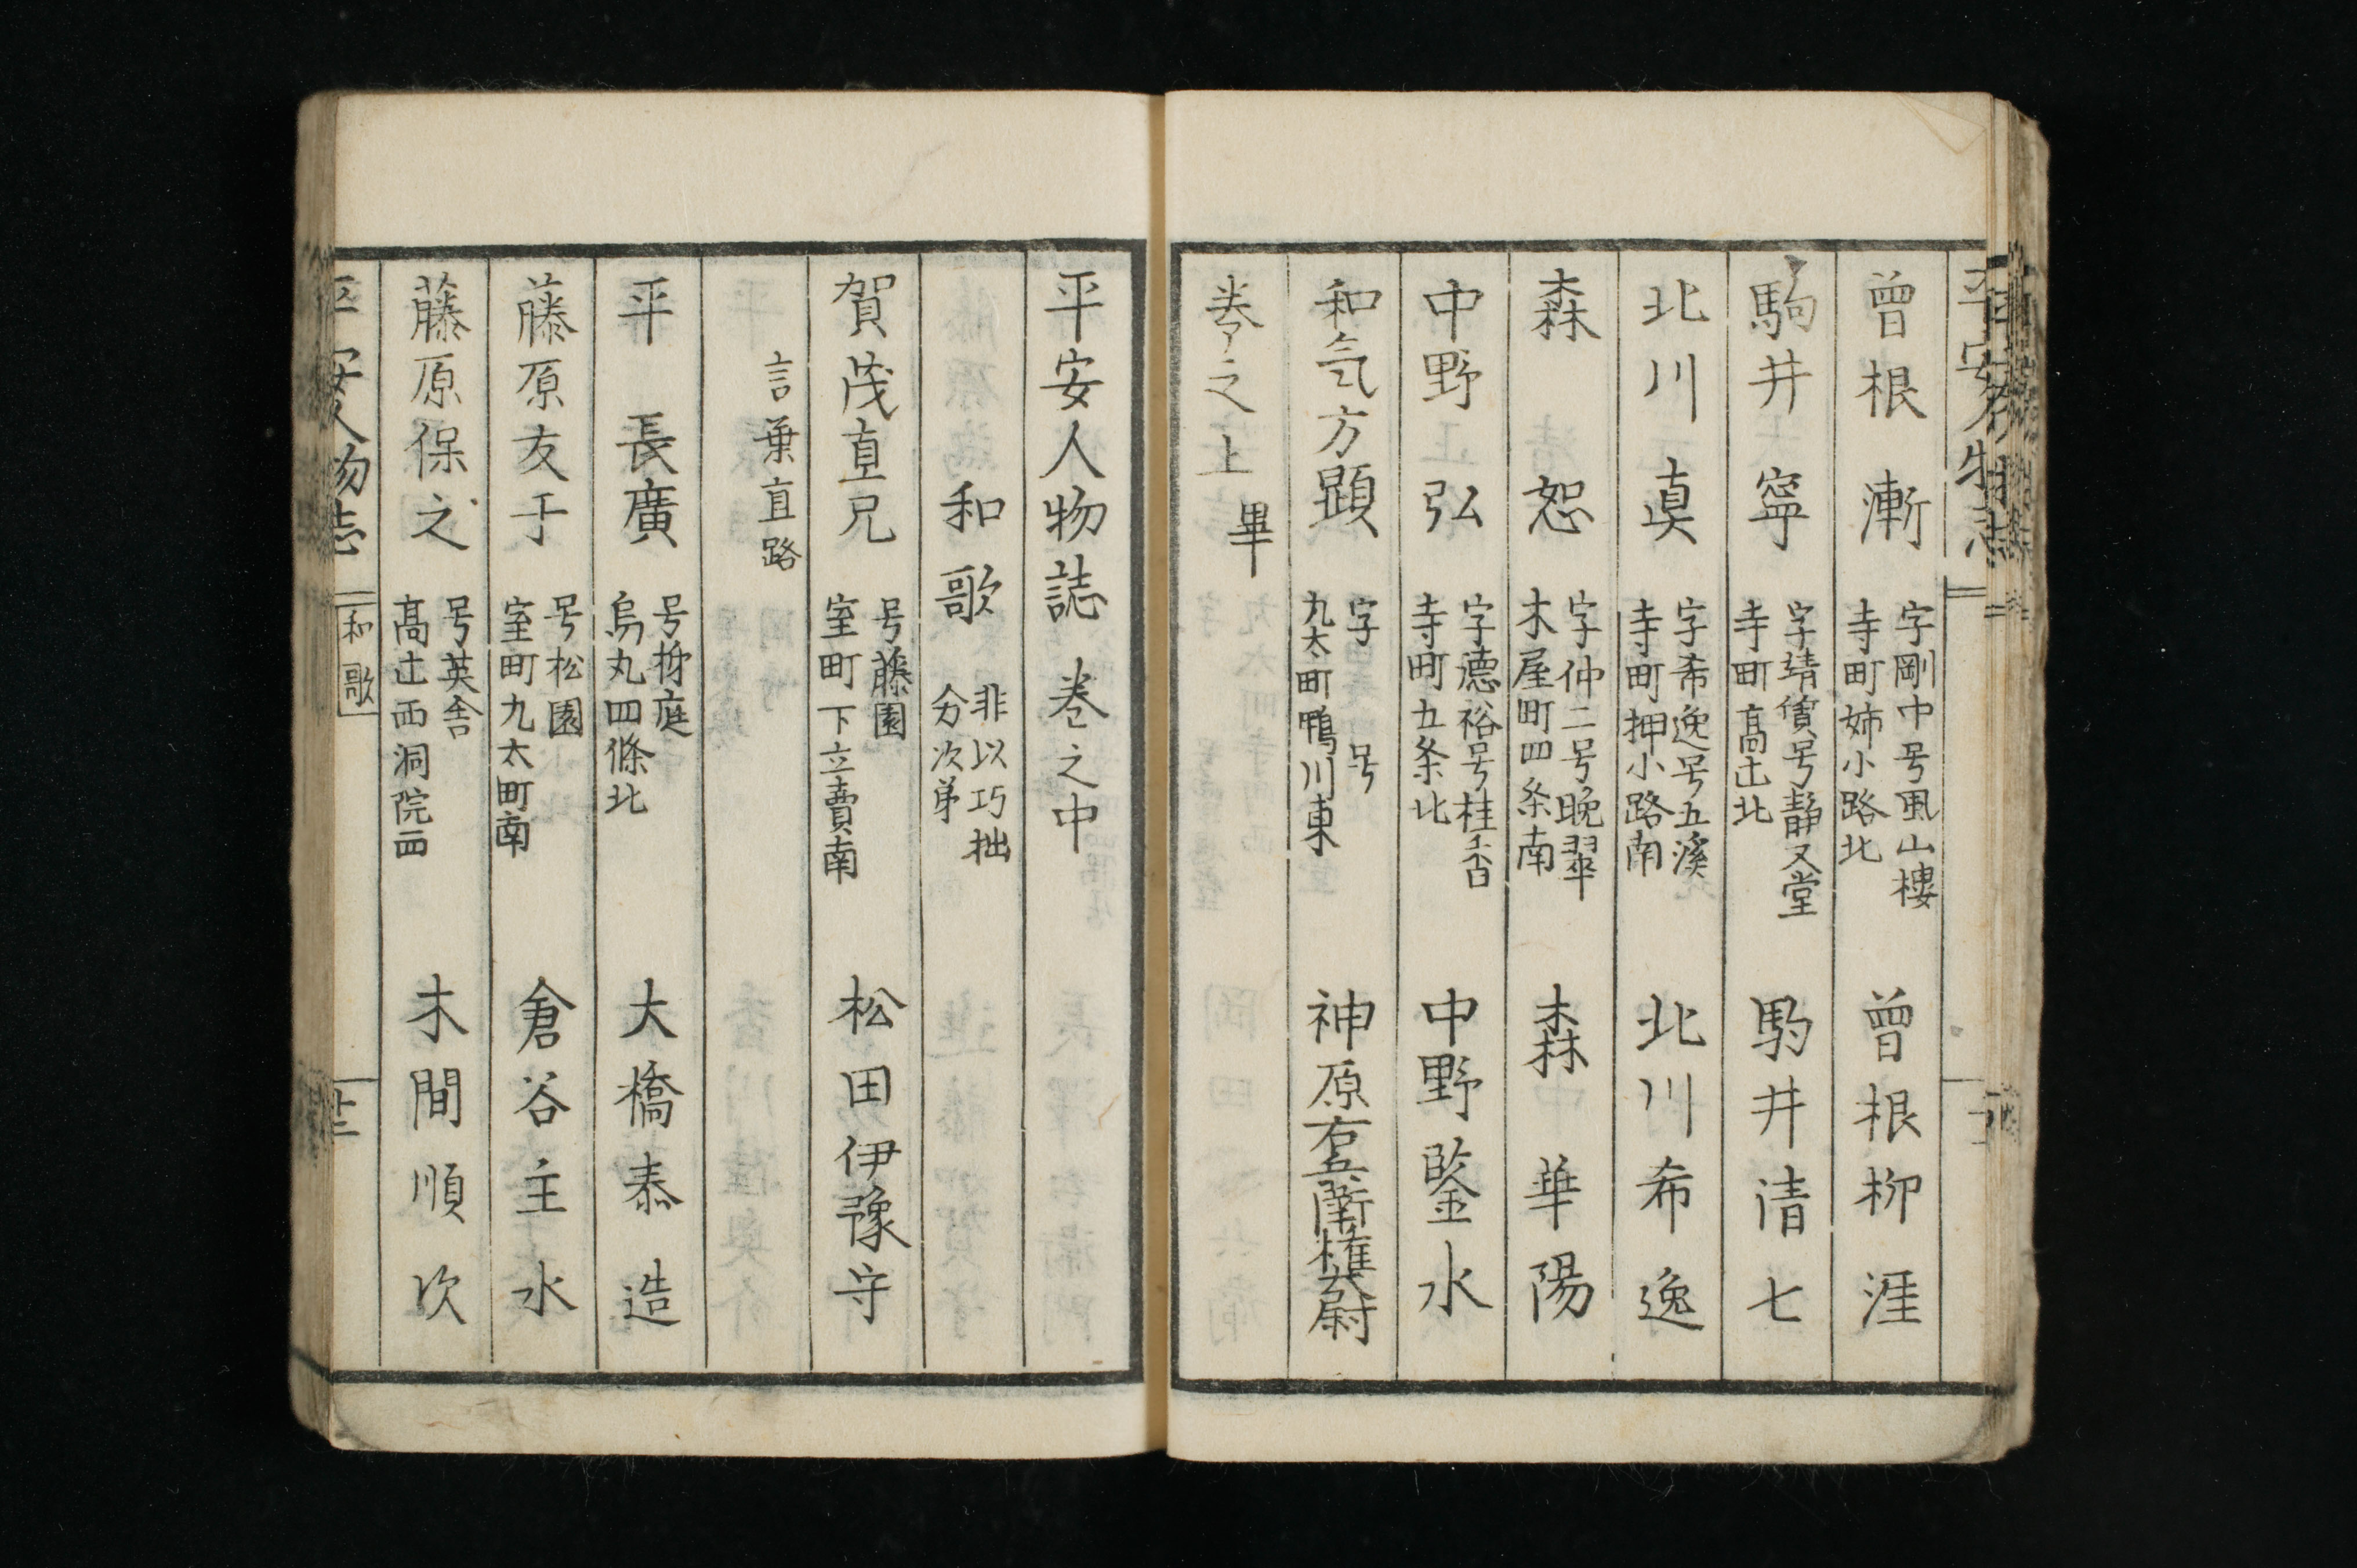 曽根漸 字剛中号風山樓 寺町姉小路北 曽根柳涯
駒井寧 字靖賓号静又堂 寺町高辻北 駒井清七
北川眞 字希逸号五溪 寺町押小路南 北川希逸
森恕 字仲二号晩翠 木屋町四条南 森華陽
中野正弘 字德裕号桂香 寺町五条北 中野鑒水
和气方顕 字 号 九太町鴨川東 神原右兵衛権大尉
巻之上 畢
平安人物誌 巻之中
和歌 非以巧拙 分次第
賀茂直兄 号藤園 室町下立賣南 松田伊豫守
言葉直路
平長廣 号栁庭 烏丸四條北 大橋泰造
藤原友于 号松園 室町九太町南 倉谷主水
藤原保之 号英舎 髙辻西洞院西 木間順次
平安人物志 和歌